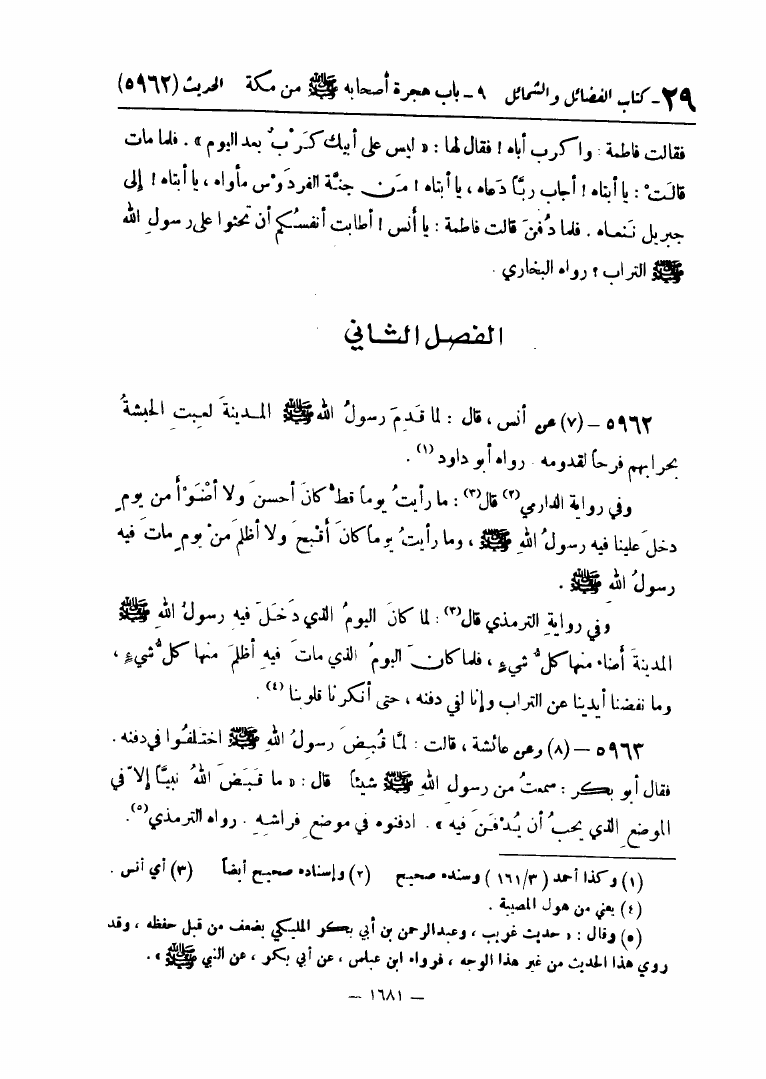 ٢٩ـ كتاب الفضائل والشمائل ٩ ـ باب هجرة أصحابه ﷺ من مكة الحديث (٥٩٦٢)
فقالت فاطمة : واكرب أباه ! فقال لها : « ليس على أبيك كَرْبٌ بعد اليوم » . فلما مات
قالَتْ : يا أبتاه ! أجاب ربَّاً دَعاه ، يا أبتاه ! مَن جنَّة الفردَوْس مأواه ، يا أبتاه ! إلى
جبريل نَنعاه . فلما دُفنَ قالت فاطمة : يا أنس ! أطابت أنفسُكم أن تحثوا على رسولِ الله
ﷺ التراب ؟ رواه البخاري .
الفصل الثاني
٥٩٦٢ – (٧) عن أنس ، قال : لما قَدِمَ رسولُ الله ﷺ المدينةَ لعِبتِ الحبشةُ
بحرابهم فرحاً لقدومه . رواه أبو داود (١) .
وفي رواية الدارمي (٢) قال (٣) : ما رأيتُ يوماً قطُّ كانَ أحسنَ ولا أضْوَأَ من يومٍ
دخلَ علينا فيه رسولُ اللهِ ﷺ ، وما رأيتُ يوماً كانَ أقْبحَ ولا أظلمَ منْ يومٍ ماتَ فيه
رسولُ الله ﷺ .
وفي روايةِ الترمذي قال (٣) : لما كانَ اليومُ الذي دَخَلَ فيه رسولُ اللهِ ﷺ
المدينةَ أضاء منها كلُّ شيءٍ ، فلما كانَ اليومُ الذي ماتَ فيه أظلمَ منها كلُّ شيءٍ ،
وما نفضنا أيدينا عن التراب وإنا لفي دفنه ، حتى أنكرنا قلوبنا (٤) .
٥٩٦٣ – (٨) وعن عائشة ، قالت : لمَّا قُبِضَ رسولُ اللهِ ﷺ اختلَفُوا في دفنه .
فقال أبو بكر : سمعتُ من رسولِ اللهِ ﷺ شيئاً قال : « ما قَبَضَ اللهُ نبيَّاً إلاّ في
الموضعِ الذي يحبُّ أن يُدْفَنَ فيه » . ادفنوه في موضعِ فراشِهِ . رواه الترمذي (٥) .
(١) وكذا أحمد ( ١٦١/٣ ) وسنده صحيح (٢) وإسناده صحيح أيضاً (٣) أي أنس .
(٤) يعني من هول المصيبة .
(٥) وقال : « حديث غريب ، وعبدالرحمن بن أبي بكر المليكي يضعف من قبل حفظه ، وقد
روي هذا الحديث من غير هذا الوجه ، فرواه ابن عباس ، عن أبي بكر ، عن النبي ﷺ » .
– ١٦٨١ –